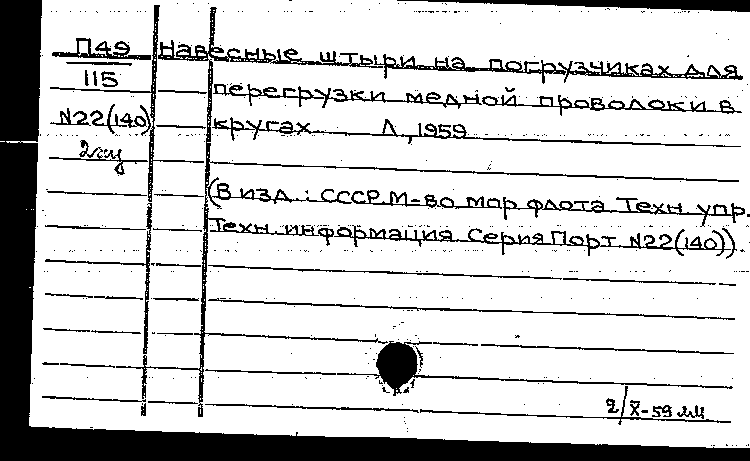 П49 Навесные штыри на погрузчиках для
115 перегрузки медной проволоки в
N22(140) кругах Л, 1959
2экз
(В изд.: СССР М-во мор флота Техн упр.
Техн. информация Серия Порт N22(140)).
2/X-59 мм